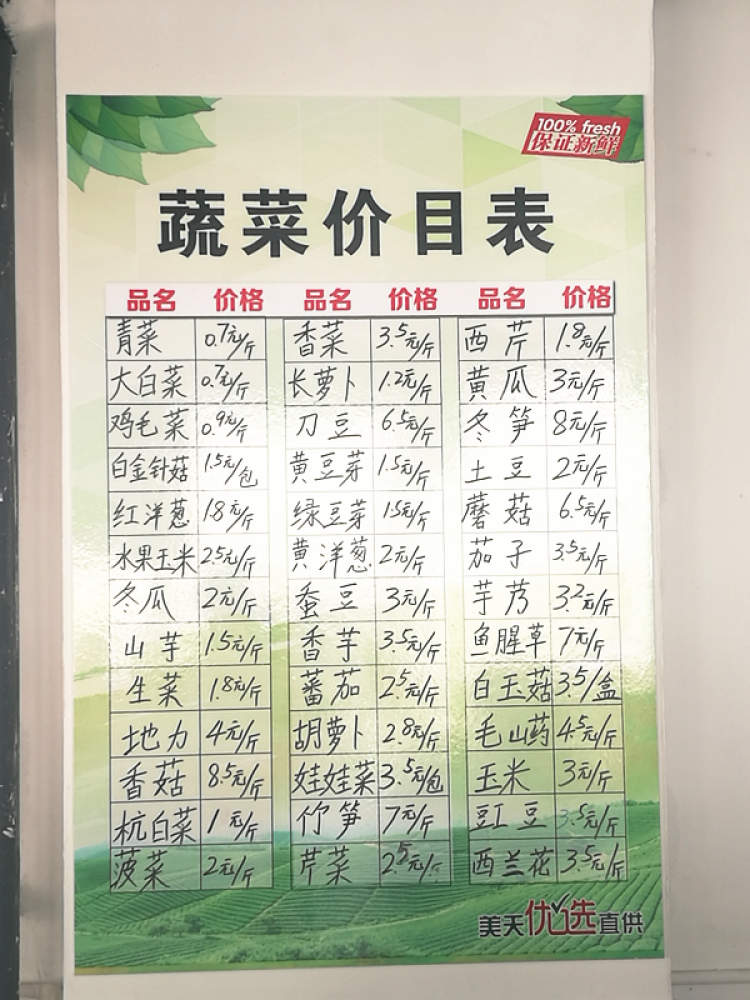 100% fresh
保证新鲜
蔬菜价目表
品名 价格 品名 价格 品名 价格
青菜 0.7元/斤 香菜 3.5元/斤 西芹 1.8元/斤
大白菜 0.7元/斤 长萝卜 1.2元/斤 黄瓜 3元/斤
鸡毛菜 0.9元/斤 刀豆 6.5元/斤 冬笋 8元/斤
白金针菇 1.5元/包 黄豆芽 1.5元/斤 土豆 2元/斤
红洋葱 1.8元/斤 绿豆芽 1.5元/斤 蘑菇 6.5元/斤
水果玉米 2.5元/斤 黄洋葱 2元/斤 茄子 3.5元/斤
冬瓜 2元/斤 蚕豆 3元/斤 芋艿 3.2元/斤
山芋 1.5元/斤 香芋 3.5元/斤 鱼腥草 7元/斤
生菜 1.8元/斤 蕃茄 2.5元/斤 白玉菇 3.5/盒
地力 4元/斤 胡萝卜 2.8元/斤 毛山药 4.5元/斤
香菇 8.5元/斤 娃娃菜 3.5元/包 玉米 3元/斤
杭白菜 1元/斤 竹笋 7元/斤 豇豆 3.5元/斤
菠菜 2元/斤 芹菜 2.5元/斤 西兰花 3.5元/斤
美天优选直供